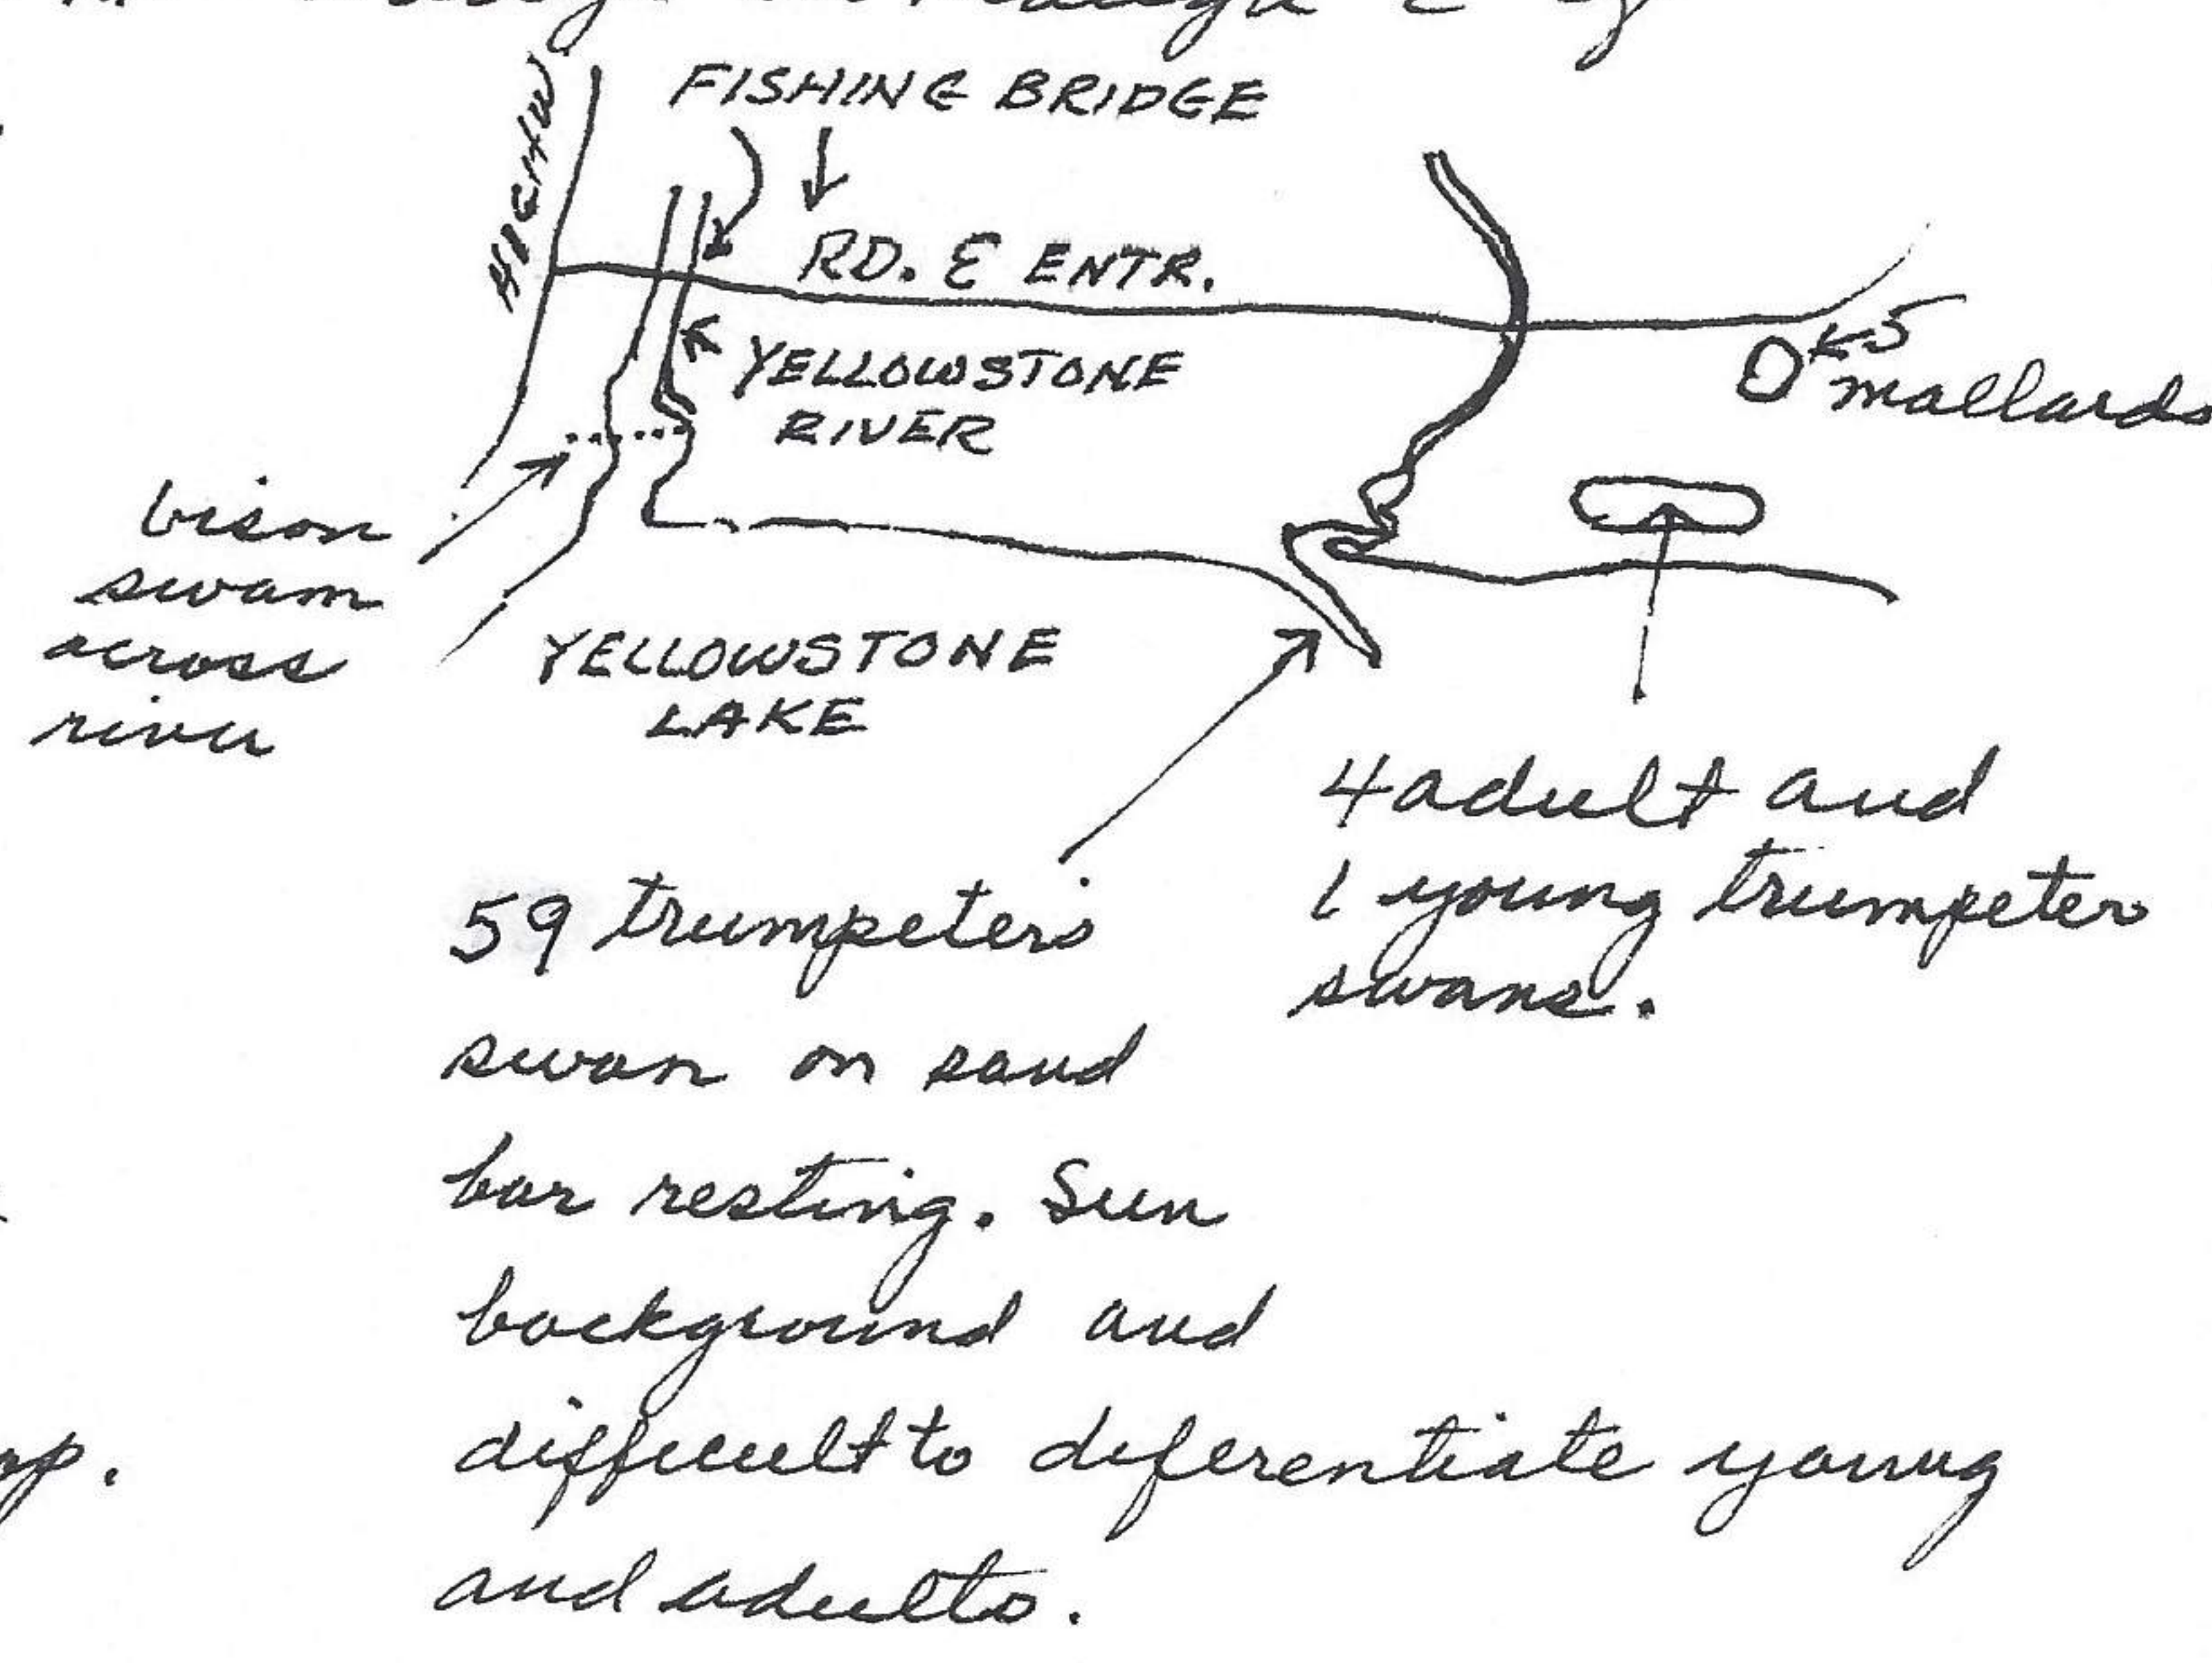 HIGHW
FISHING BRIDGE
RD. E ENTR.
YELLOWSTONE
RIVER
5
mallards
bison
swam
across
river
YELLOWSTONE
LAKE
4 adult and
1 young trumpeter
swans.
59 trumpeters
swan on sand
bar resting. Sun
background and
difficult to diferentiate young
and adults.